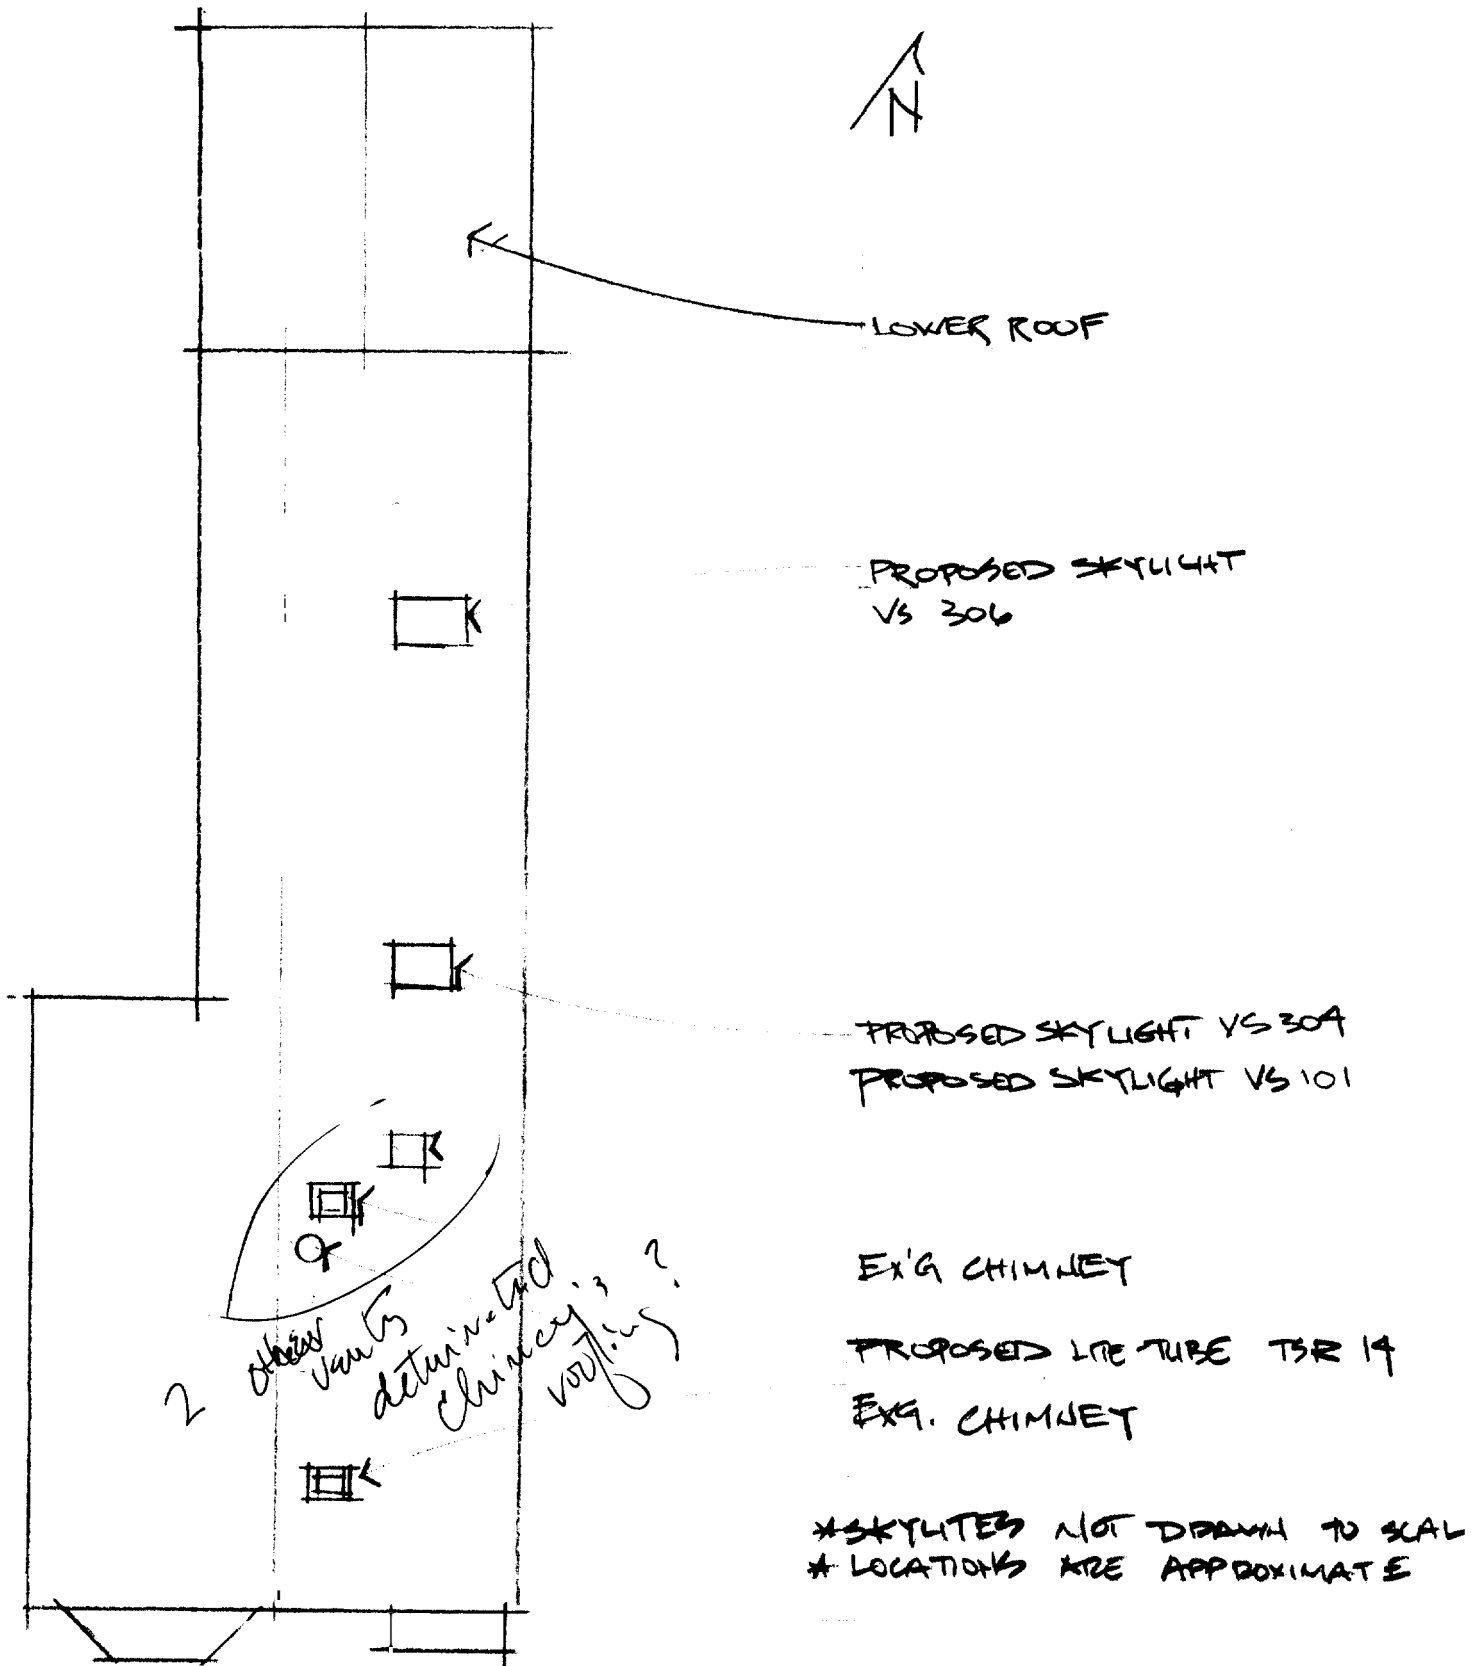 N
LOWER ROOF
PROPOSED SKYLIGHT
VS 306
PROPOSED SKYLIGHT VS 304
PROPOSED SKYLIGHT VS 101
EX'G CHIMNEY
PROPOSED LITE TUBE TSR 14
EXG. CHIMNEY
2 other
vents
chimney's
roofing?
*SKYLITES NOT DRAWN TO SCAL
* LOCATIONS ARE APPROXIMATE